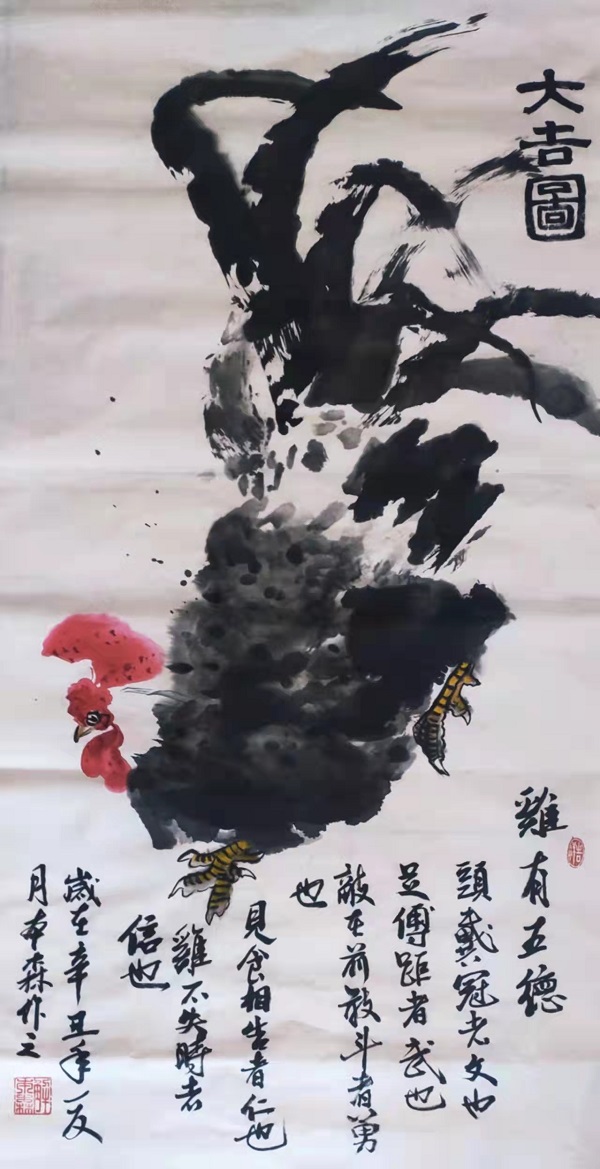 大吉圖
雞有五德
頭戴冠者文也
足傅距者武也
敵在前敢斗者勇
也
見食相告者仁也
雞不失時者
信也
歲在辛丑年
月本森作之